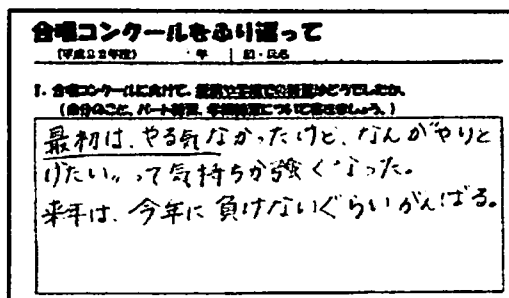 合唱コンクールをふり返って
(平成22年度) 年 組・氏名
1. 合唱コンクールに向けて、
(自分のこと、パート練習、学級練習について書きましょう。)
最初は、やる気なかったけど、なんがやりと
げたい〟って気持ちが強くなった。
来年は、今年に負けないぐらいがんばる。